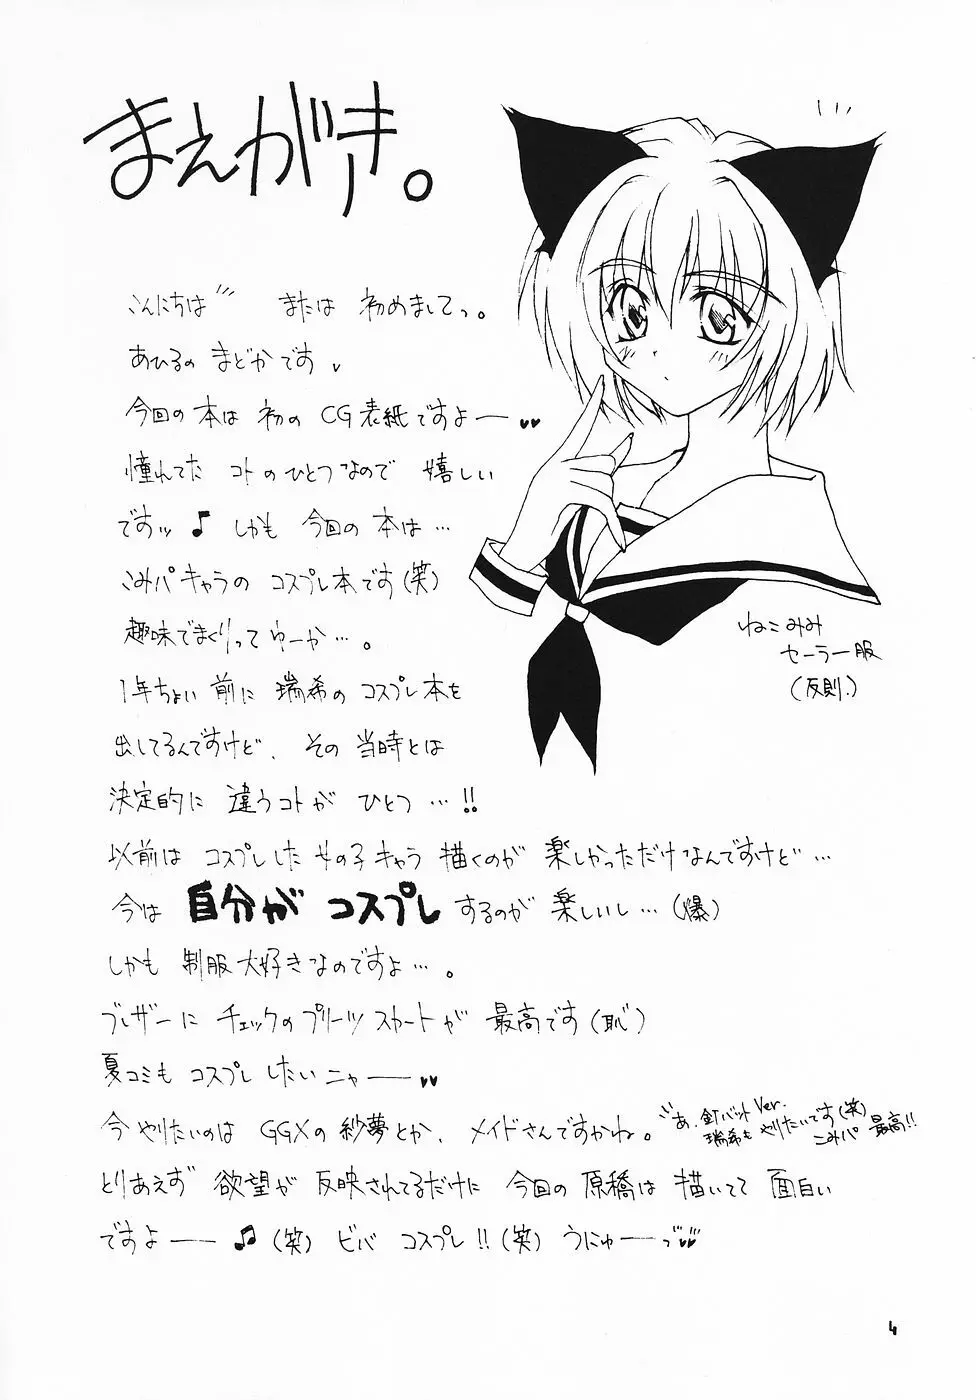 まえがき。
こんにちは または 初めましてっ。
あひるの まどかです
今回の 本は 初の CG表紙ですよー
憧れてた コトのひとつなので 嬉しい
ですッ♪ しかも 今回の 本は…
こみパキャラの コスプレ本です(笑)
趣味でまくりってゆーか…。
1年ちょい 前に 瑞希の コスプレ本を
出してるんですけど、その 当時とは
決定的に 違うコトが ひとつ…!!
以前は コスプレした 女の子キャラ 描くのが 楽しかっただけなんですけど…
今は 自分が コスプレするのが 楽しいし…(爆)
しかも 制服大好きなのですよ…。
ブレザーに チェックのプリーツスカートが 最高です(恥)
夏コミも コスプレしたいニャー
今 やりたいのは GGXの 紗夢とか、メイドさんですかね。
あ、釘バット Ver.
瑞希も やりたいです(笑)
こみパ 最高!!
とりあえず 欲望が 反映されてるだけに 今回の 原稿は 描いてて 面白い
ですよー♫(笑) ビバ コスプレ!!(笑) うにゅーっ
ねこみみ
セーラー服
(反則。)
4